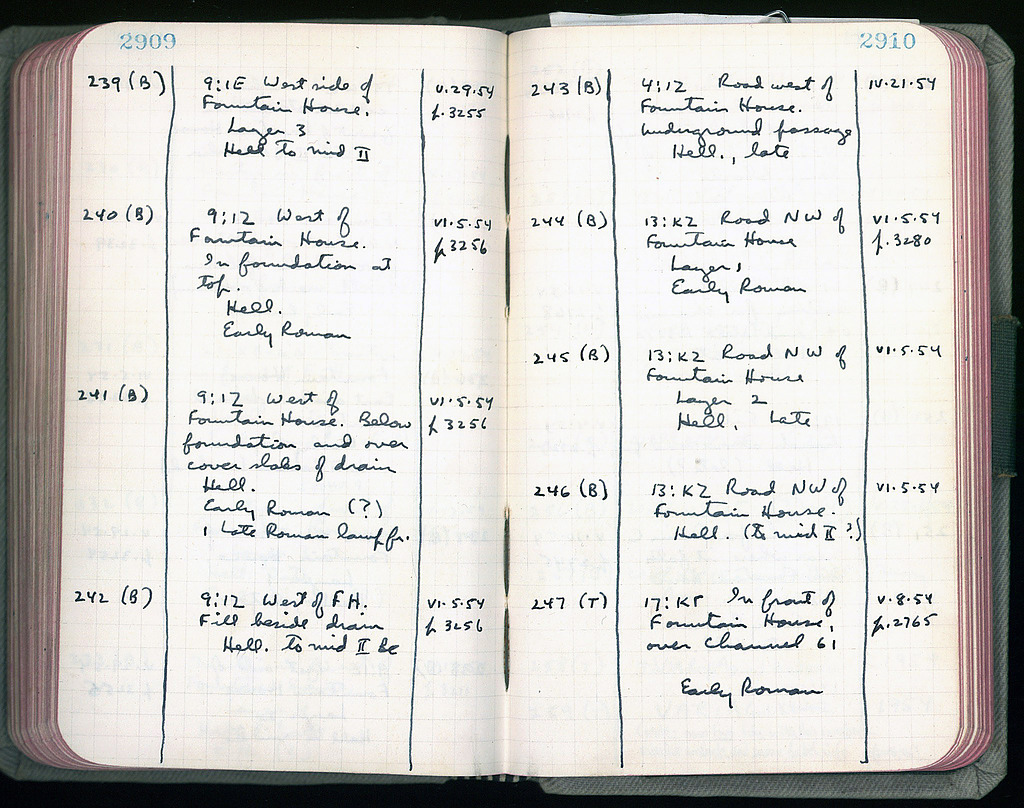 2909
239 (B)
9:1E West side of
Fountain House.
Layer 3
Hell to mid II
V.29.54
p.3255
240 (B)
9:1Z West of
Fountain House.
In foundation at
top.
Hell.
Early Roman
VI.5.54
p.3256
241 (B)
9:1Z West of
Fountain House. Below
foundation and over
cover slabs of drain
Hell.
Early Roman (?)
1 Late Roman lamp fr.
VI.5.54
p.3256
242 (B)
9:1Z West of F.H.
Fill beside drain
Hell. to mid II BC
VI.5.54
p.3256
2910
243 (B)
4:1Z Road west of
Fountain House.
Underground passage
Hell., late
IV.21.54
244 (B)
13:KZ Road NW of
Fountain House
Layer 1
Early Roman
VI.5.54
p.3280
245 (B)
13:KZ Road NW of
Fountain House
Layer 2
Hell, Late
VI.5.54
246 (B)
13:KZ Road NW of
Fountain House.
Hell. (to mid II ?)
VI.5.54
247 (T)
17: In front of
Fountain House,
over Channel 61
Early Roman
V.8.54
p.2765